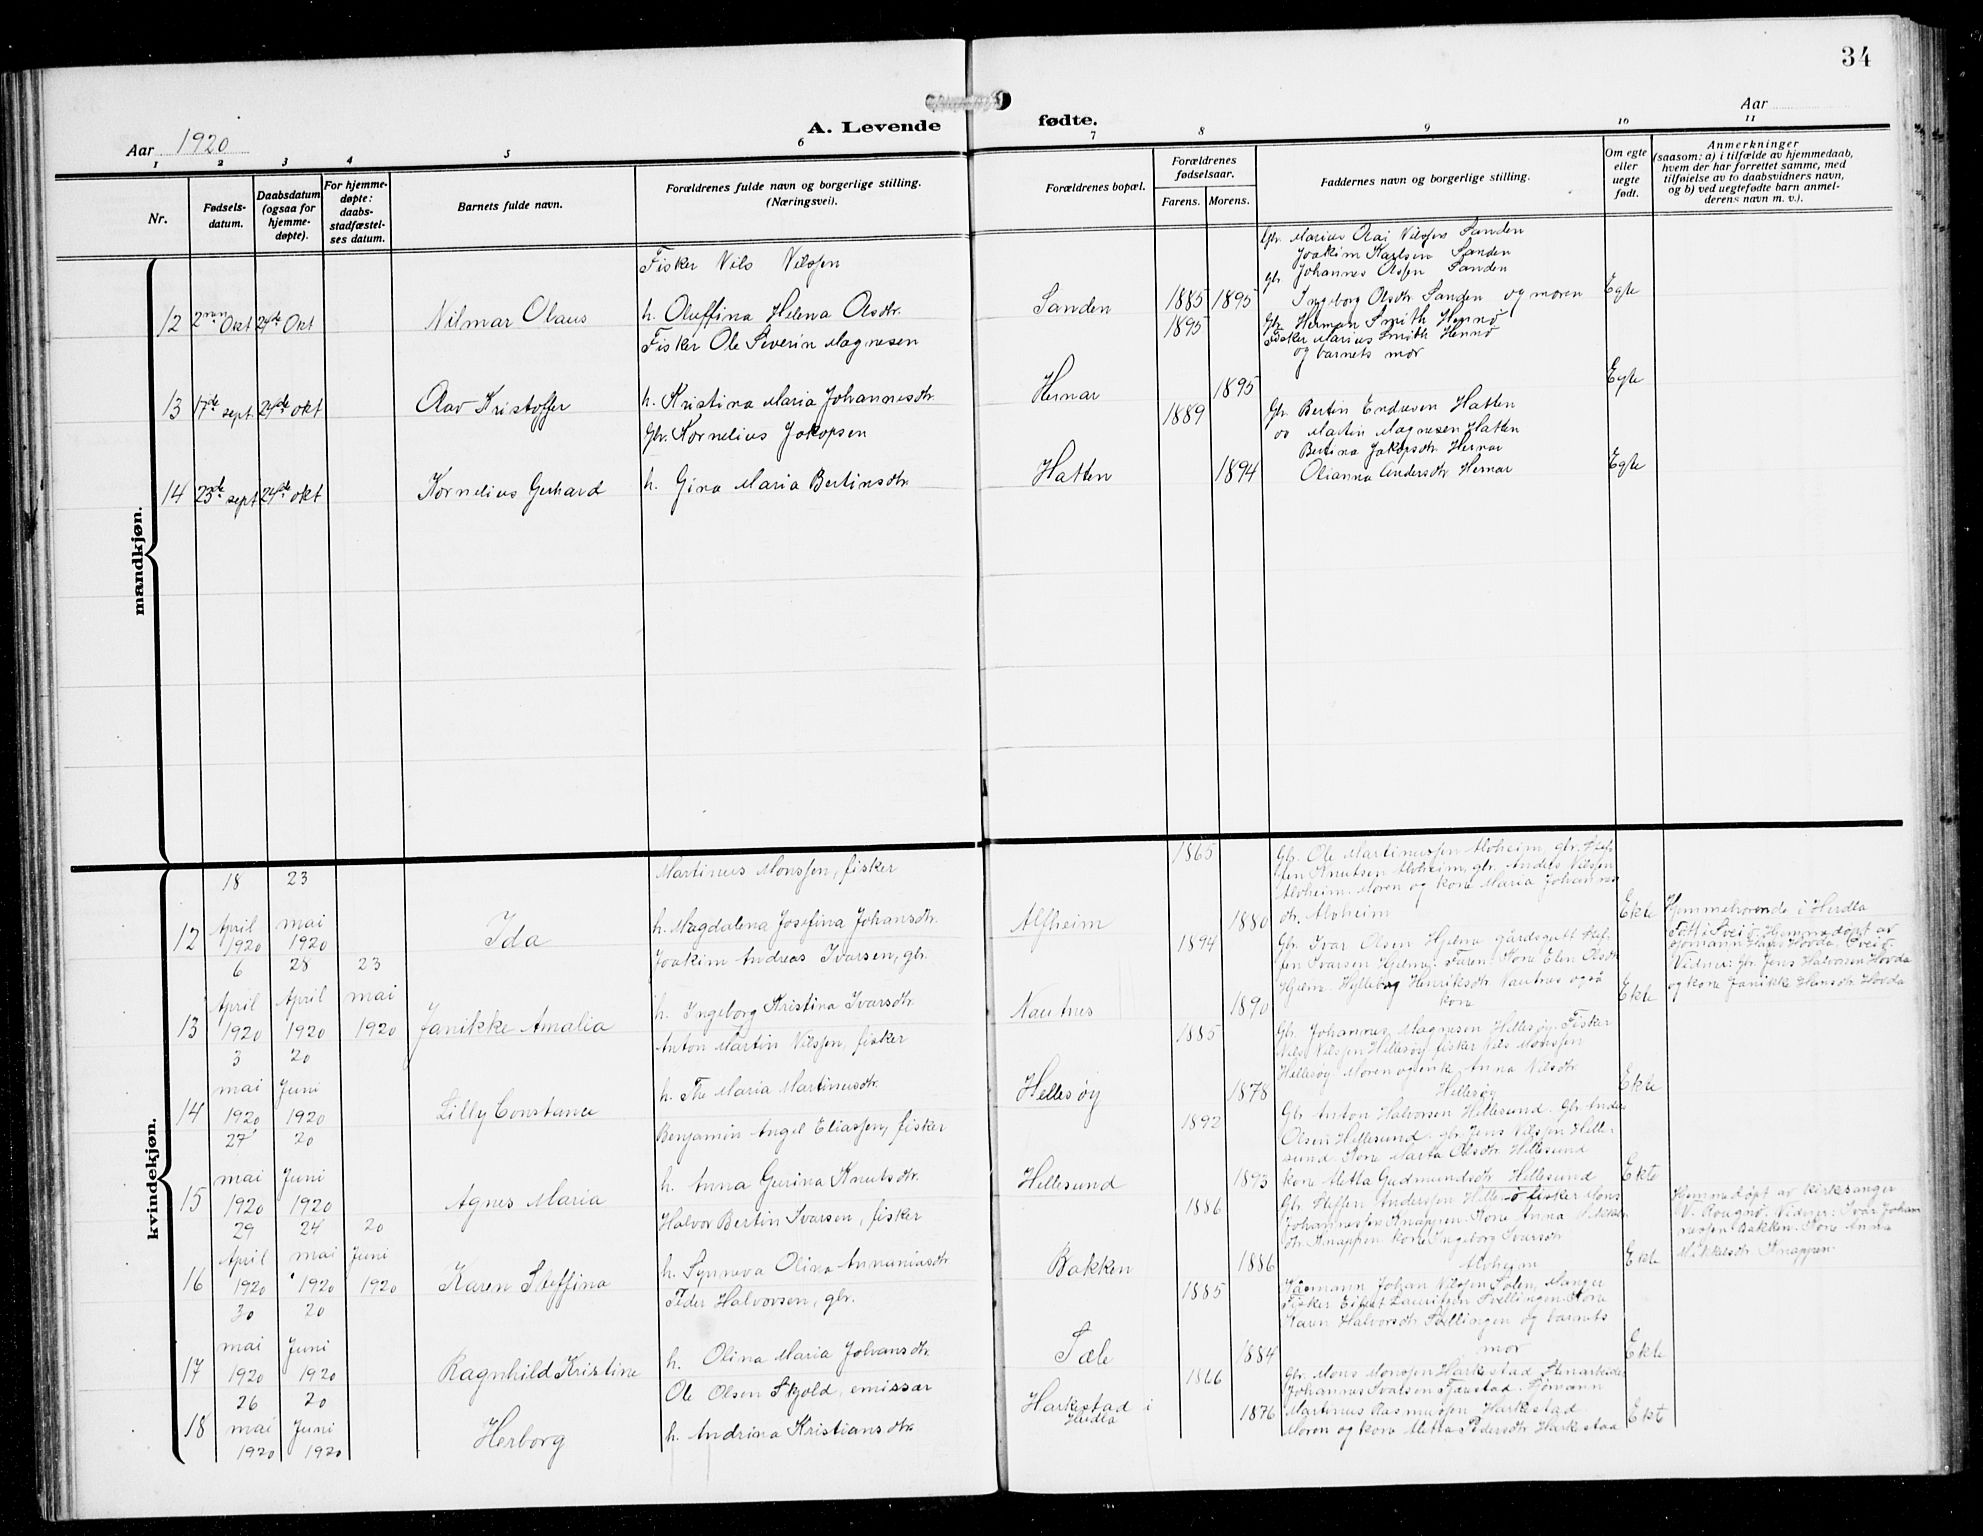 34
Aar 1920
A. Levende fødte.
Aar
1 2 3 4 5 6 7 8 9 10 11
Nr.
Fødsels-
datum.
Daabsdatum
(ogsaa for
hjemme-
døpte).
For hjemme-
døpte:
daabs-
stadfæstel-
ses datum.
Barnets fulde navn.
Forældrenes fulde navn og borgerlige stilling.
(Næringsvei).
Forældrenes bopæl.
Forældrenes
fødselsaar.
Farens. Morens.
Faddernes navn og borgerlige stilling.
Om egte
eller
uegte
født.
Anmerkninger
(saasom: a) i tilfælde av hjemmedaab,
hvem der har forrettet samme, med
tilføielse av to daabsvidners navn,
og b) ved uegtefødte barn anmel-
derens navn m. v.).
mandkjøn.
Fisker Nils Nilssen
12 2nen Okt 24de Okt Nilmar Olaus h. Oluffina Helena Olsdtr. Sanden 1885 1895 Egte
Gbr. Marius Olai Nilssen Sanden
Joakim Karlsen Sanden
Gbr. Johannes Olsen Sanden
Ingeborg Olsdtr Sanden og moren
Fisker Ole Severin Magnesen 1895
13 17de sept. 24de okt Olav Kristoffer h. Kristina Maria Johannesdtr. Hernar 1895 Egte
Gbr. Herman Smith Hennø
Fisker Marius Smith Hennø
og barnets mor
Gbr. Kornelius Jakopsen 1889
14 23de sept 24de okt Kornelius Gerhard h. Gina Maria Bertinsdtr. Hatten 1894 Egte
Gbr. Bertin Endresen Hatten
Martin Magnesen Hatten
Bertina Jakopsdtr Hernar
Olianna Andersdtr Hernar
kvindekjøn.
18 23 Martinus Monssen, fisker 1865
12 April mai Ida h. Magdalena Josefina Johansdtr. Alfheim 1880 Ekte
1920 1920
Gbr. Ole Martinussen Alvheim, gbr. Stef-
fen Knutsen Alvheim, gbr. Anders Nilssen
Alvheim. Moren og kone Maria Johannes
dtr. Alvheim
6 28 23 Joakim Andreas Ivarsen, gbr. 1894
13 April April mai Janikke Amalia h. Ingeborg Kristina Ivarsdtr. Nautnes 1890 Ekte
1920 1920 1920
Gbr. Ivar Olsen Hjelme gårdsgutt Stef-
fen Ivarsen Hjelme. Faren. Kone Elen Olsdtr
Hjelme. Hylleborg Henriksdtr Nautnes også
kone
Hjemmehørende i Herdla
Født i Sveio. Hjemmedøpt av
Sjømann Hans Hovda, Sveio.
Vidner: Gbr. Jens Halvorsen Hovda
og kone Janikke Hansdtr. Hovda
3 20 Anton Martin Nilssen, fisker 1885
14 mai Juni Lilly Constance h. The Maria Martinusdtr. Hellesøy 1878 Ekte
1920 1920
Gbr. Johannes Magnesen Hellesøy. Fisker
Nils Nilssen Hellesøy fisker Nils Monssen
Hellesøy Moren og enke Anna Nilsdtr.
Hellesøy
27 20 Benjamin Angel Eliassen, fisker 1892
15 mai Juni Agnes Maria h. Anna Gurina Knutsdtr. Hellesund 1893 Ekte
1920 1920
Gbr Anton Halvorsen Hellesund. Gbr Anders
Olsen Hellesund. gbr. Jens Nilssen Helle-
sund. Kone Marta Olsdtr. Hellesund
kone Metta Gudmundsdtr Hellesund
29 24 20 Halvor Bertin Ivarsen, fisker 1886
16 April mai Juni Karen Steffina h. Synneva Olina Annaniasdtr. Bakken 1886 Ekte
1920 1920 1920
Gbr. Steffen Anderssen Fisker Mons
Johannessen Knappen. Kone Anna Mikkels
dtr. Knappen kone Ingeborg Ivarsdtr
Alvheim
Hjemmedøpt av kirkesanger
V. Rougnø. Vidner: Ivar Johan
nessen Bakken. Kone Anna
Mikkelsdtr Knappen.
30 20 Peder Halvorsen, gbr. 1885
17 mai Juni Ragnhild Kristine h. Olina Maria Johansdtr. Tæle 1884 Ekte
1920 1920
Johan Nilssen Solen, Manger
Fisker Lauritsen Svellingen Kone
Karen Halvorsdtr Svellingen og barnets
mor
26 20 Ole Olsen Skjold, emissær 1866
18 mai Juni Herborg h. Andrina Kristiansdtr. Harkestad i Herdla 1876 Ekte
1920 1920
Gbr. Mons Monssen Harkestad Stenarbeider
Johannes Ivarsen Tjæustad. Sjømann
Martinus Rasmussen Harkestad
Moren og kone Metta Pedersdtr Harkestad